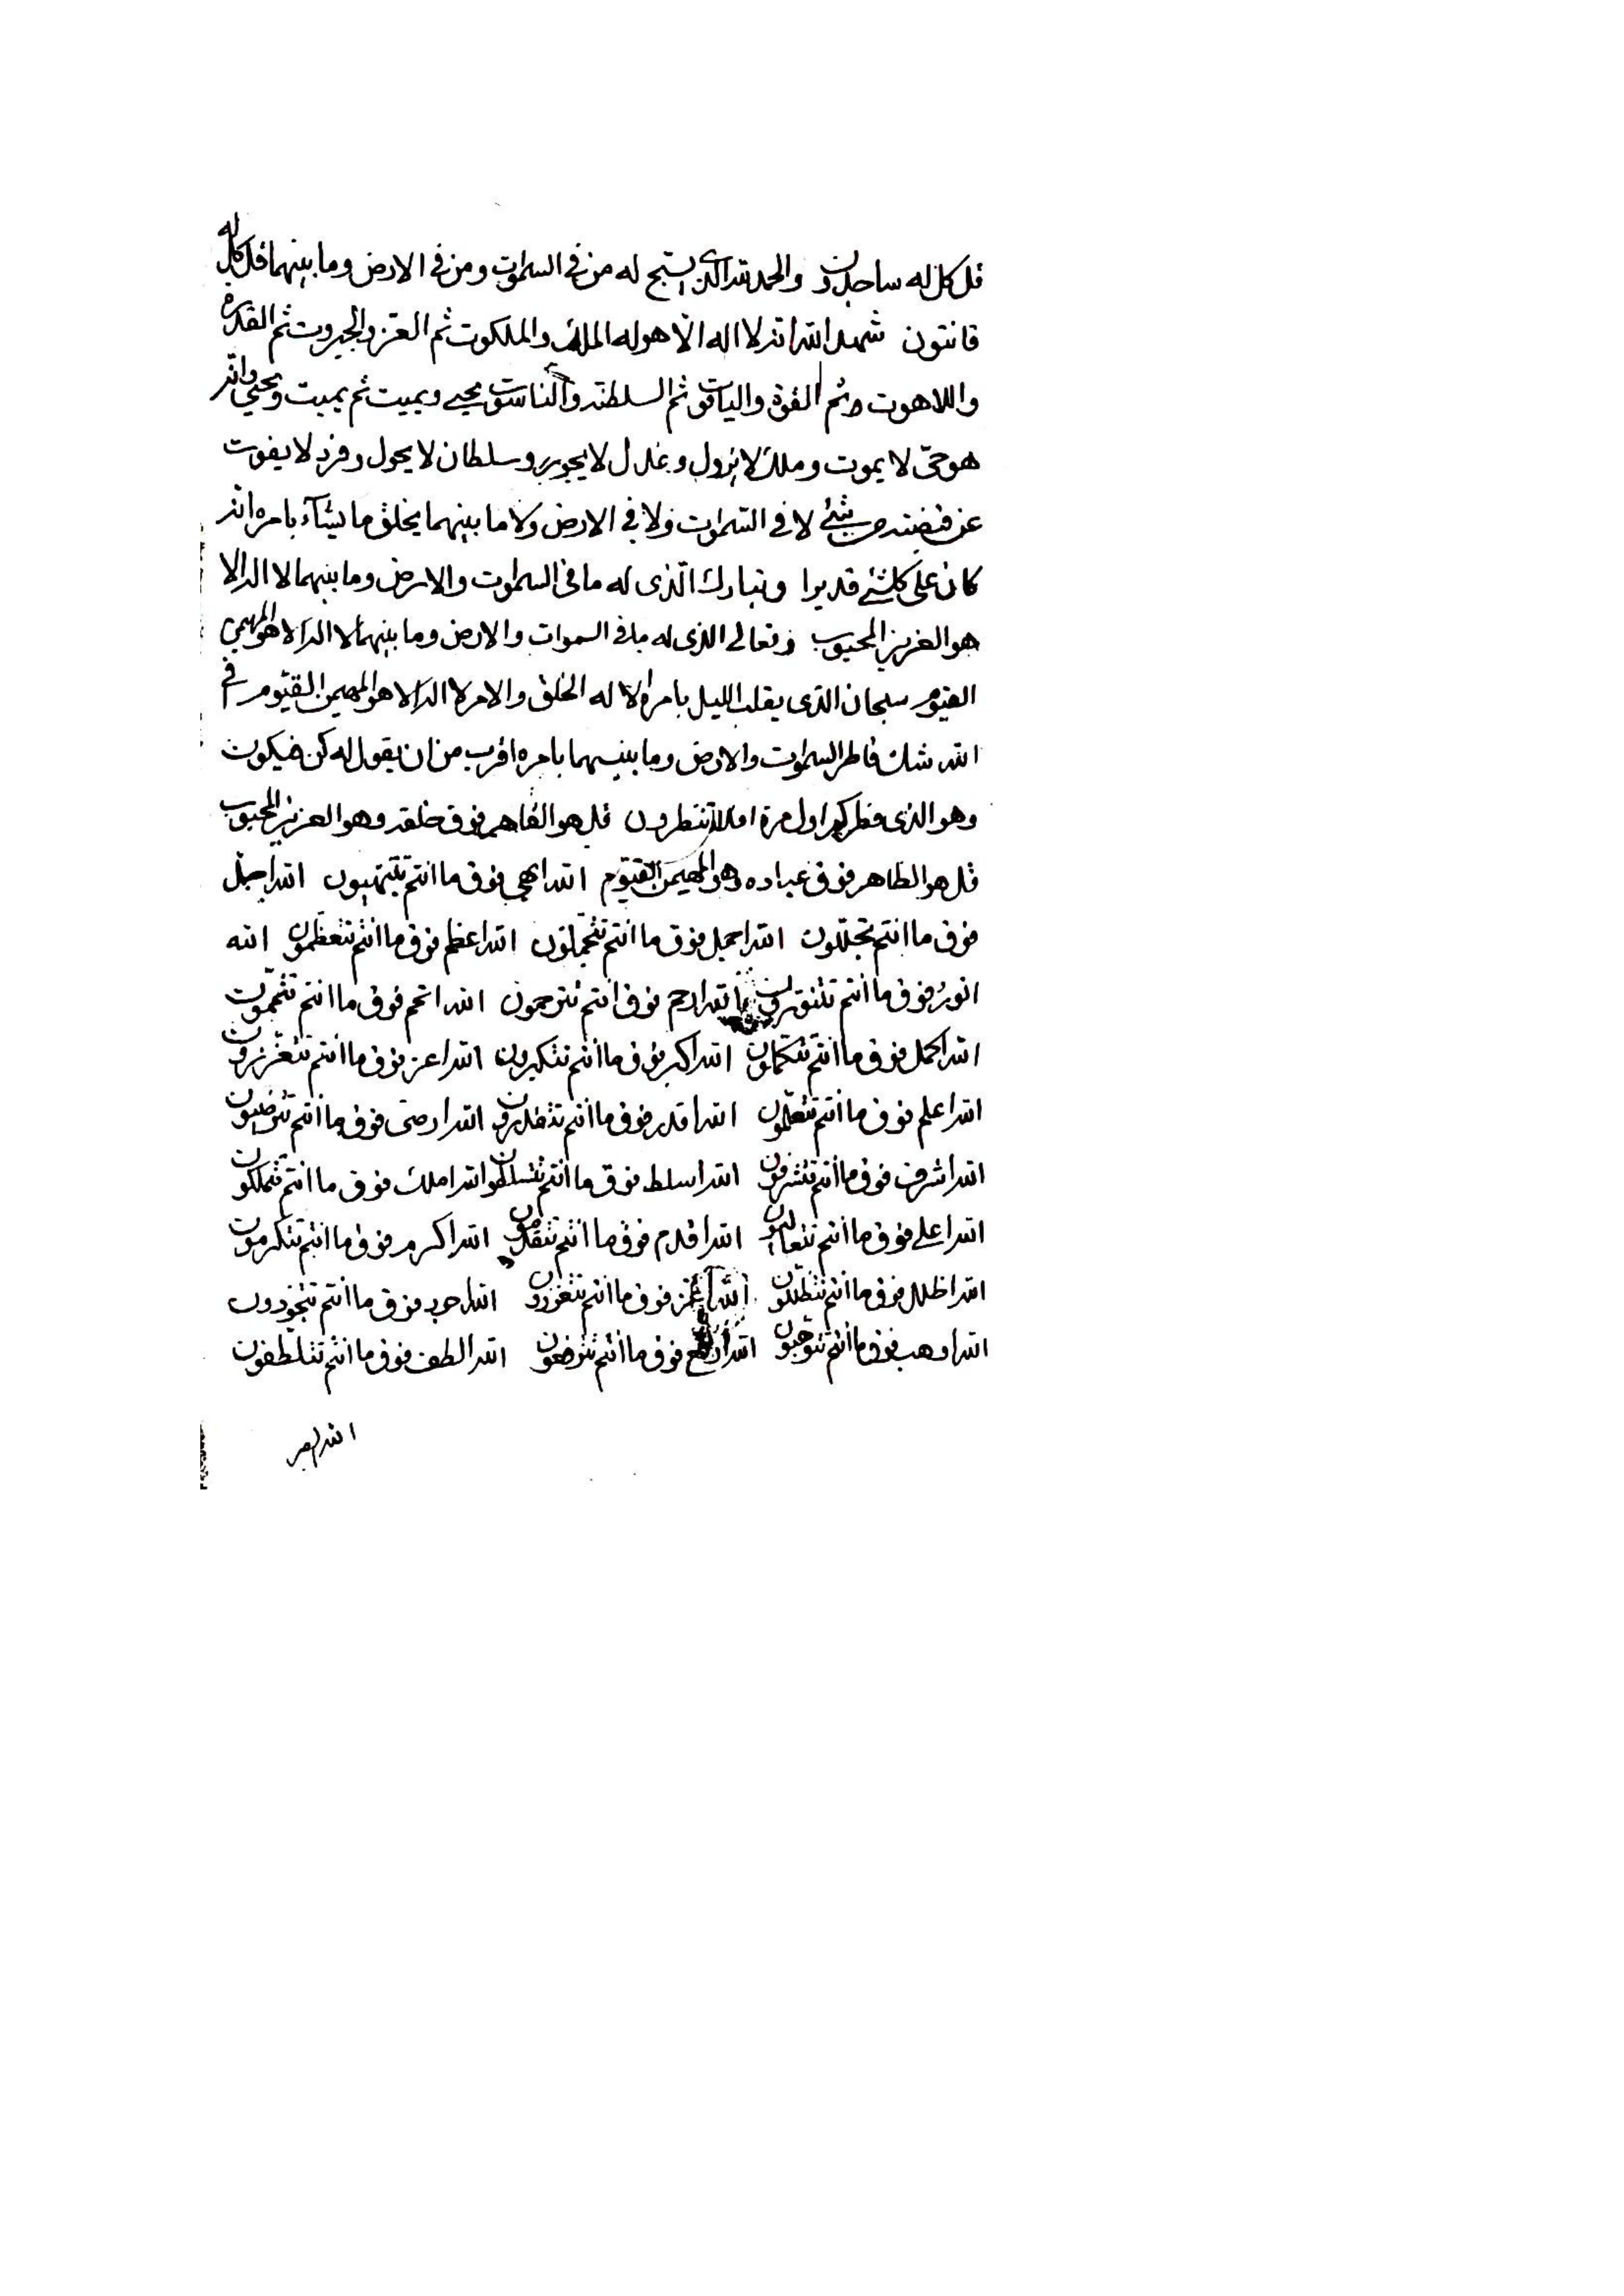 قل كل له ساجدون والحمد لله الذي يسبح له من في السموات ومن في الارض وما بينهما قل كل له
قانتون شهد الله انه لا اله الا هو له الملك والملكوت ثم العز والجبروت ثم القدرة
واللاهوت ثم القوة والياقوت ثم السلطنة والناسوت يحيي ويميت ثم يميت ويحيي وانه
هو حي لا يموت وملك لا يزول وعدل لا يجور وسلطان لا يحول وفرد لا يفوت
عن قبضته من شئ لا في السموات ولا في الارض ولا ما بينهما يخلق ما يشآء بامره انه
كان على كلشئ قديرا وتبارك الذي له ما في السموات والارض وما بينهما لا اله الا
هو العزيز المحبوب وتعالى الذي له ما في السموات والارض وما بينهما لا اله الا هو المهيمن
القيوم سبحان الذي يقلب الليل بامره الا له الخلق والامر لا اله الا هو المهيمن القيوم افي
الله شك فاطر السموات والارض وما بينهما بامره اقرب من ان يقول له كن فيكون
وهو الذي فطركم اول مرة افلا تنظرون قل هو القاهر فوق خلقه وهو العزيز المحبوب
قل هو الظاهر فوق عباده وهو المهيمن القيوم الله ابهى فوق ما انتم تبتهيون الله اجل
فوق ما انتم تجللون الله اجمل فوق ما انتم تتجملون الله اعظم فوق ما انتم تتعظمون الله
انور فوق ما انتم تتنورون الله ارحم فوق انتم تترحمون الله اتمم فوق ما انتم تتممون
الله اكمل فوق ما انتم تتكملون الله اكبر فوق ما انتم تتكبرون الله اعز فوق ما انتم تتعززون
الله اعلم فوق ما انتم تتعلمون الله اقدر فوق ما انتم تتقدرون الله ارضى فوق ما انتم تترضيون
الله اشرف فوق ما انتم تتشرفون الله اسلط فوق ما انتم تتسلطون الله املك فوق ما انتم تتملكون
الله اعلى فوق ما انتم تتعاليون الله اقدم فوق ما انتم تتقدمون الله اكرم فوق ما انتم تتكرمون
الله اظلل فوق ما انتم تتظللون الله فوق ما انتم الله اجود فوق ما انتم تتجودون
الله اوهب فوق ما انتم تتوهبون الله ارفع فوق ما انتم تترفعون الله الطف فوق ما انتم تتلطفون
الله